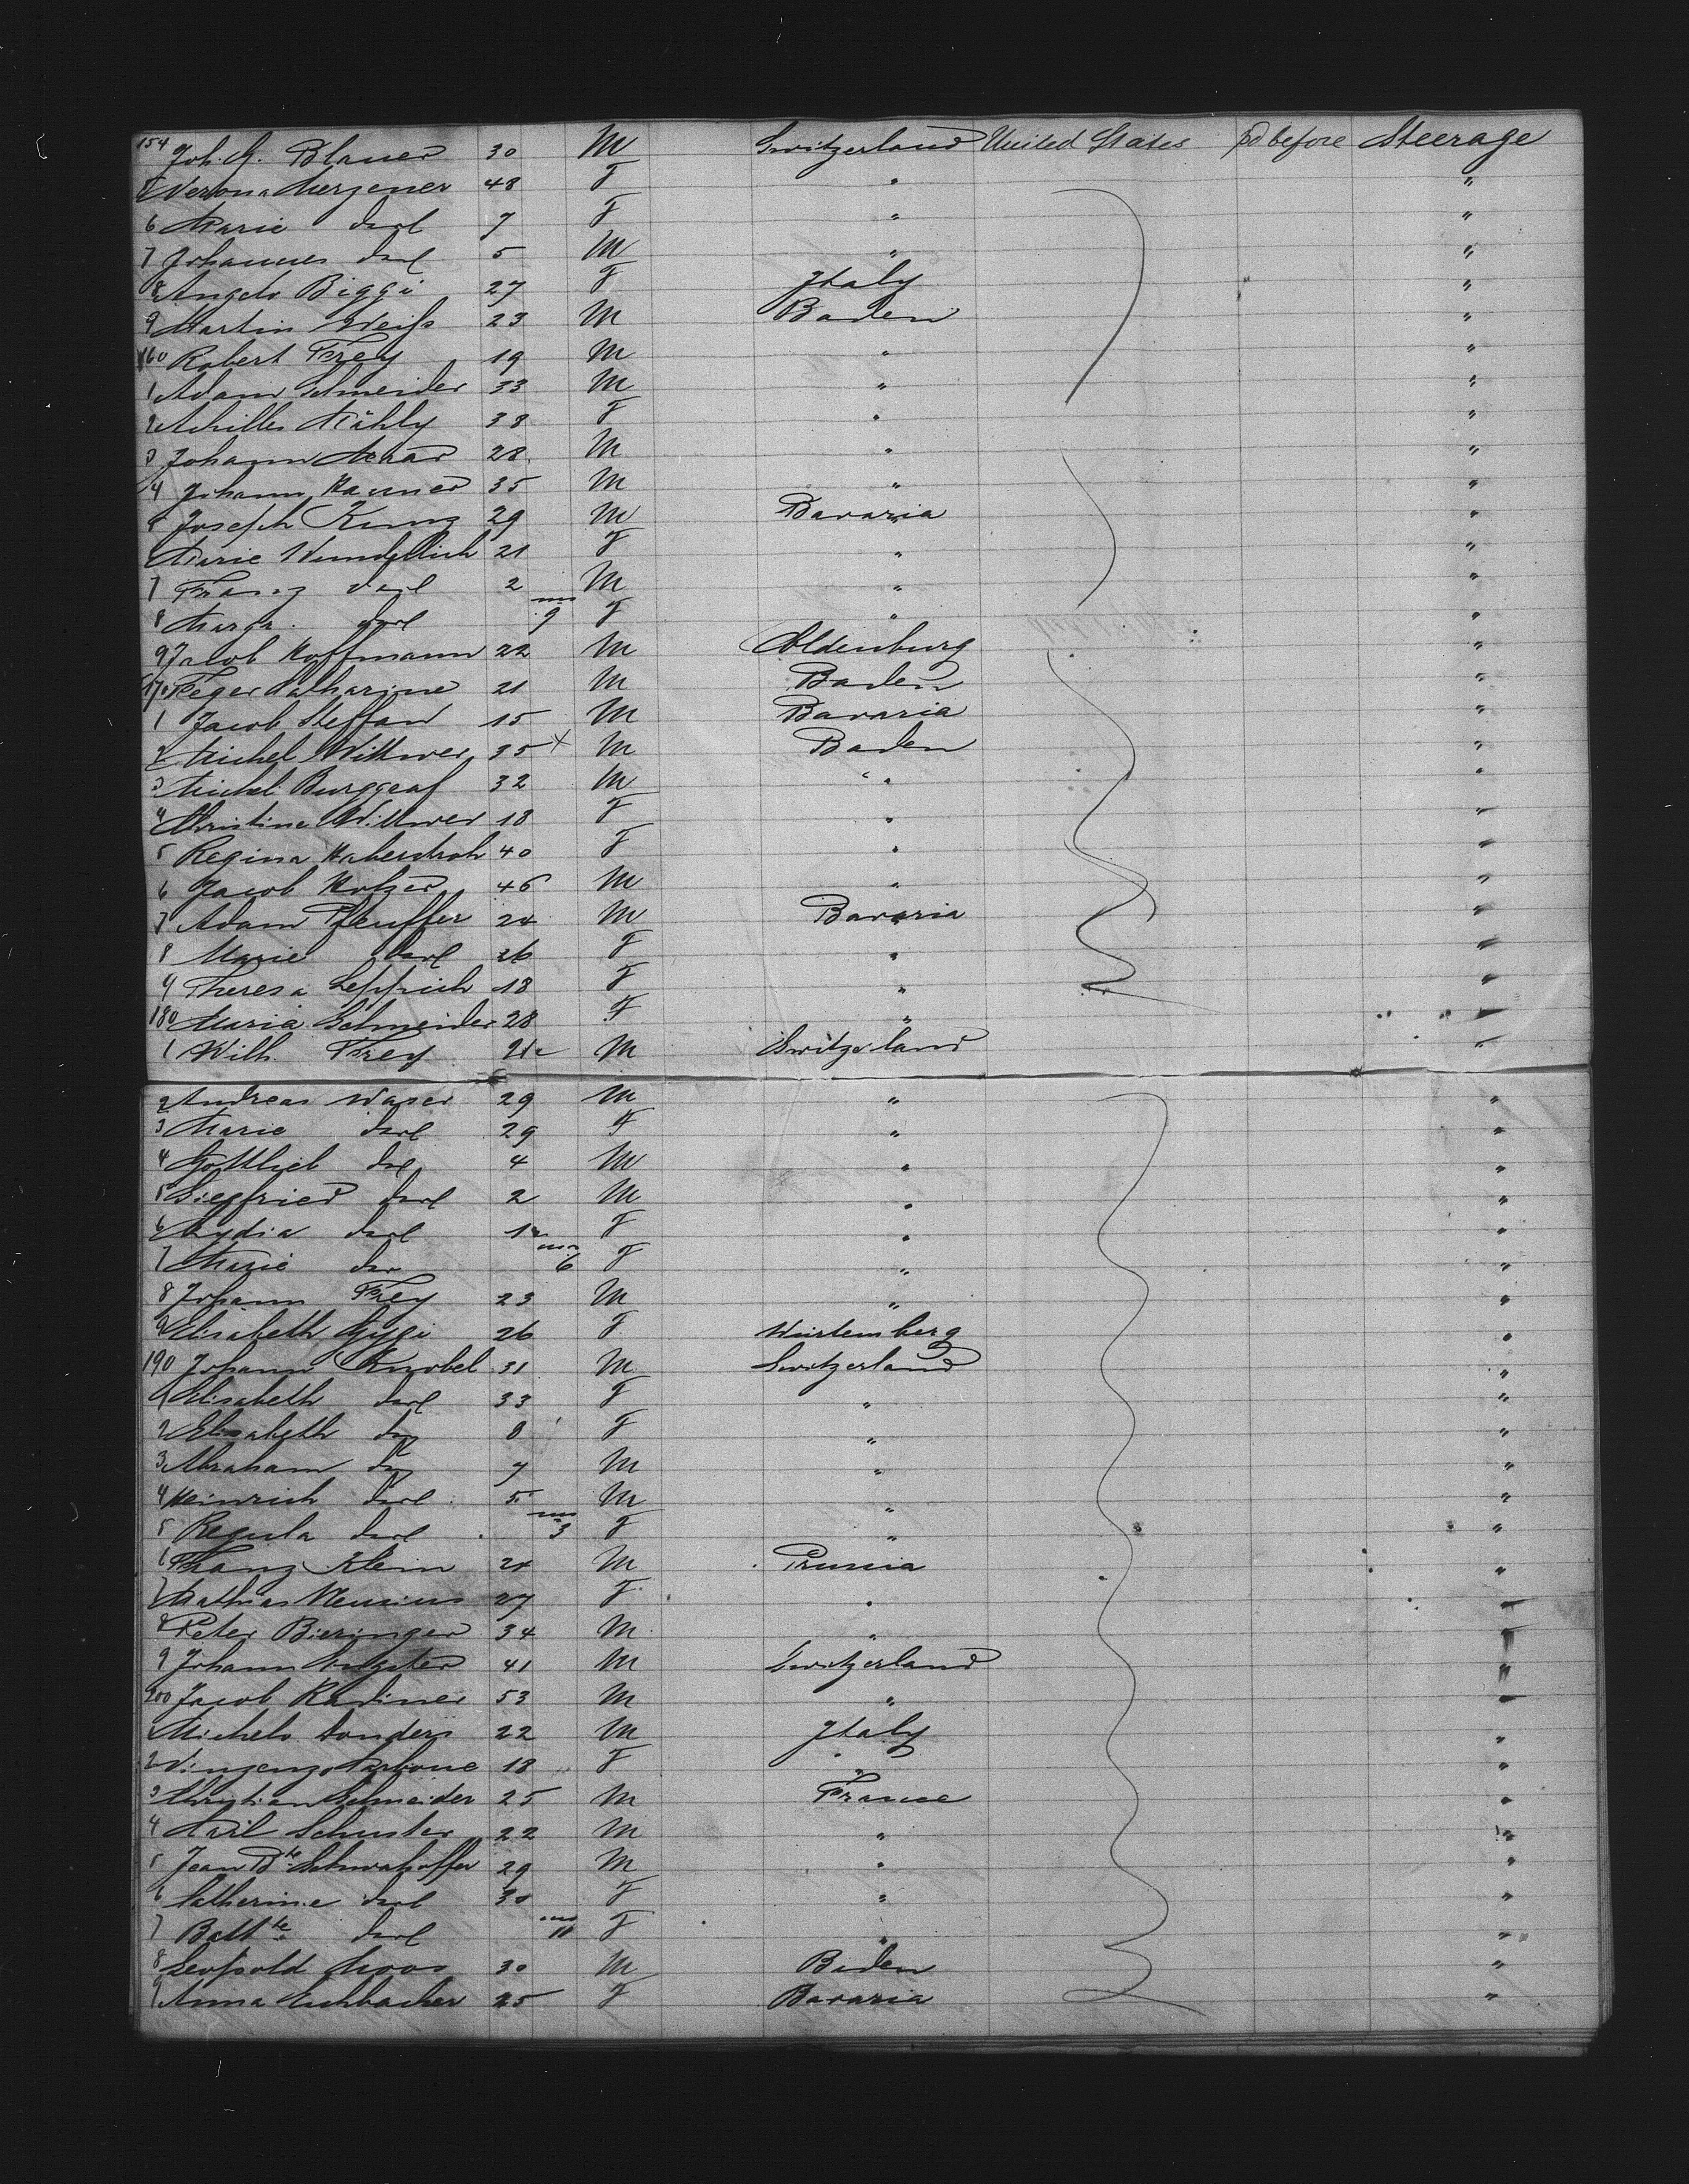 154 Joh. G. Blaner 30 M Switzerland United States pd before Steerage
5 Verona Merzener 48 F " "
6 Marie darl 7 F " "
7 Johannes darl 5 M " "
8 Angelo Biggi 27 F Italy "
9 Martin Weiß 23 M Baden "
160 Robert Frey 19 M " "
1 Adam Schneider 33 M " "
2 Achilles Mähly 38 F " "
3 Johann 28 M " "
4 Johann Hauner 35 M " "
5 Joseph Kunz 29 M Bavaria "
6 Marie Wunderlich 21 F " "
7 Franz darl 2 M " "
8 Margr. darl ms 9 F " "
9 Jacob Hoffmann 22 M Oldenburg "
170 Feger Catharine 21 M Baden "
1 Jacob Steffan 15 M Bavaria "
2 Michel Wittwer 35 x M Baden "
3 Michel Burggraf 32 M " "
4 Christine Wittwer 18 F " "
5 Regina Haberstroh 40 F " "
6 Jacob Holzer 46 M " "
7 Adam Pfeuffer 24 M Bavaria "
8 Marie darl 26 F " "
9 Theresa Seppich 18 F " "
180 Maria Schneider 28 F " "
1 Wilh. Frey M Switzerland "
2 Andreas Waser 29 M " "
3 Marie darl 29 F " "
4 Gottlieb darl 4 M " "
5 Siegfried darl 2 M " "
6 Lydia darl F " "
7 Marie dar ms 6 F " "
8 Johann Frey 23 M " "
9 Elisabeth Gygi 26 F Würtemberg "
190 Johann Knobel 31 M Switzerland "
1 Elisabeth darl 33 F " "
2 Elisabeth 8 F " "
3 Abraham 7 M " "
4 Heinrich darl 5 M " "
5 Regula darl ms 3 F " "
6 Franz Klein 24 M Prussia "
7 Mathias 27 F " "
8 Peter Bieringer 34 M " "
9 Johann 41 M Switzerland "
200 Jacob Kadiner 53 M " "
1 Michelo Sanders 22 M Italy "
2 Vinzenzo Carbone 18 F " "
3 Christian Schneider 25 M France "
4 Karl Schuster 22 M " "
5 Jean Bte Schwahoffer 29 M " "
6 Catherine darl 30 F " "
7 Battte darl ms 11 F " "
8 Leopold Moos 30 M Baden "
9 Anna Eschbacher 25 F Bavaria "